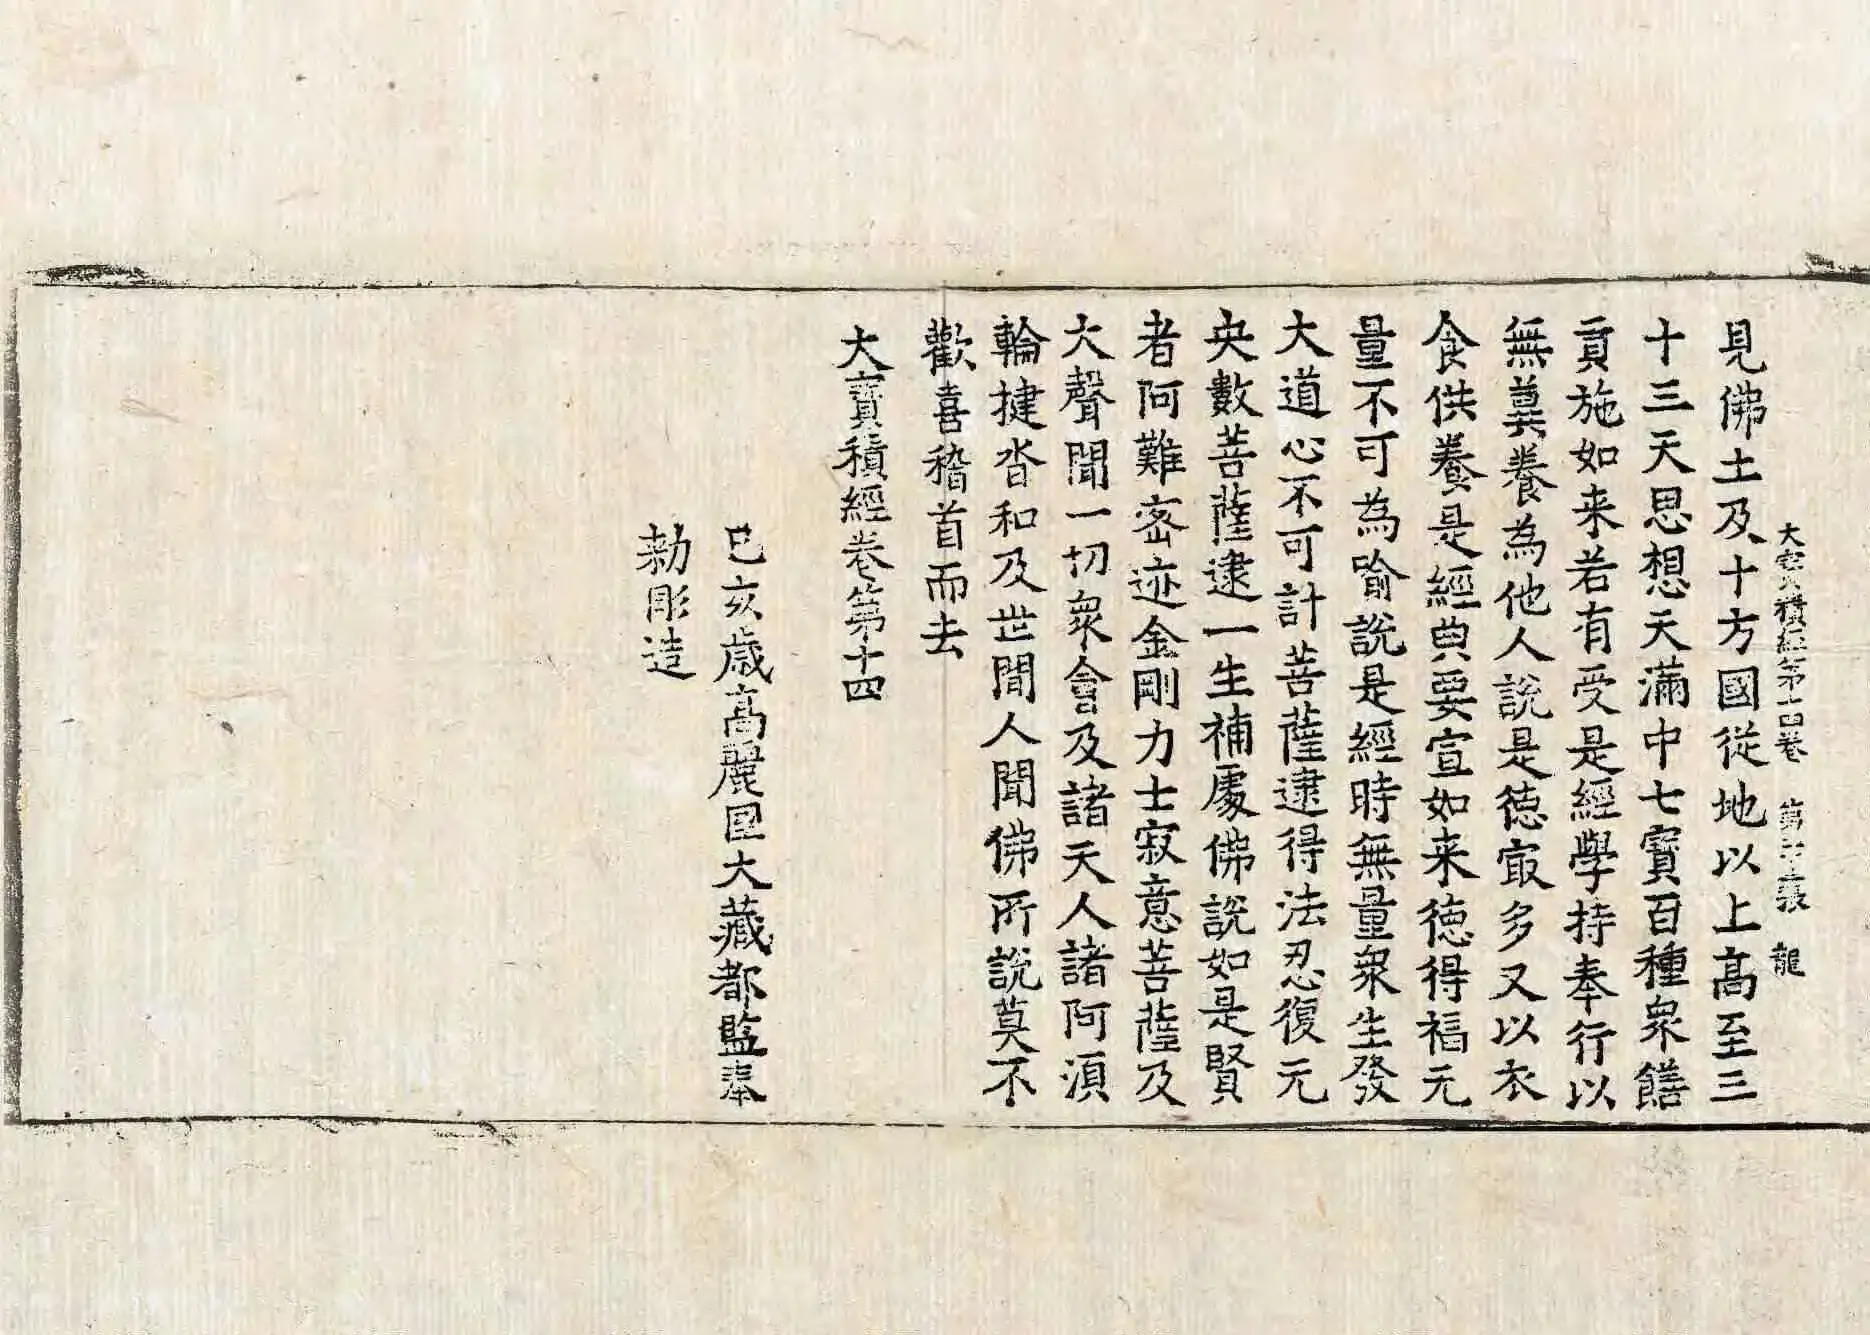 大寶積經第十四卷 第二十三張 龍
見佛土及十方國從地以上髙至三
十三天思想天滿中七寶百種衆饍
貢施如来若有受是經學持奉行以
無異養為他人說是徳冣多又以衣
食供養是經典要宣如来徳得福无
量不可為喻說是經時無量衆生發
大道心不可計菩薩逮得法忍復无
央數菩薩逮一生補處佛說如是賢
者阿難密迹金剛力士寂意菩薩及
大聲聞一切衆會及諸天人諸阿湏
輪揵沓和及世間人聞佛所說莫不
歡喜稽首而去
大寶積經卷第十四
已亥歳髙麗国大藏都監奉
勑彫造